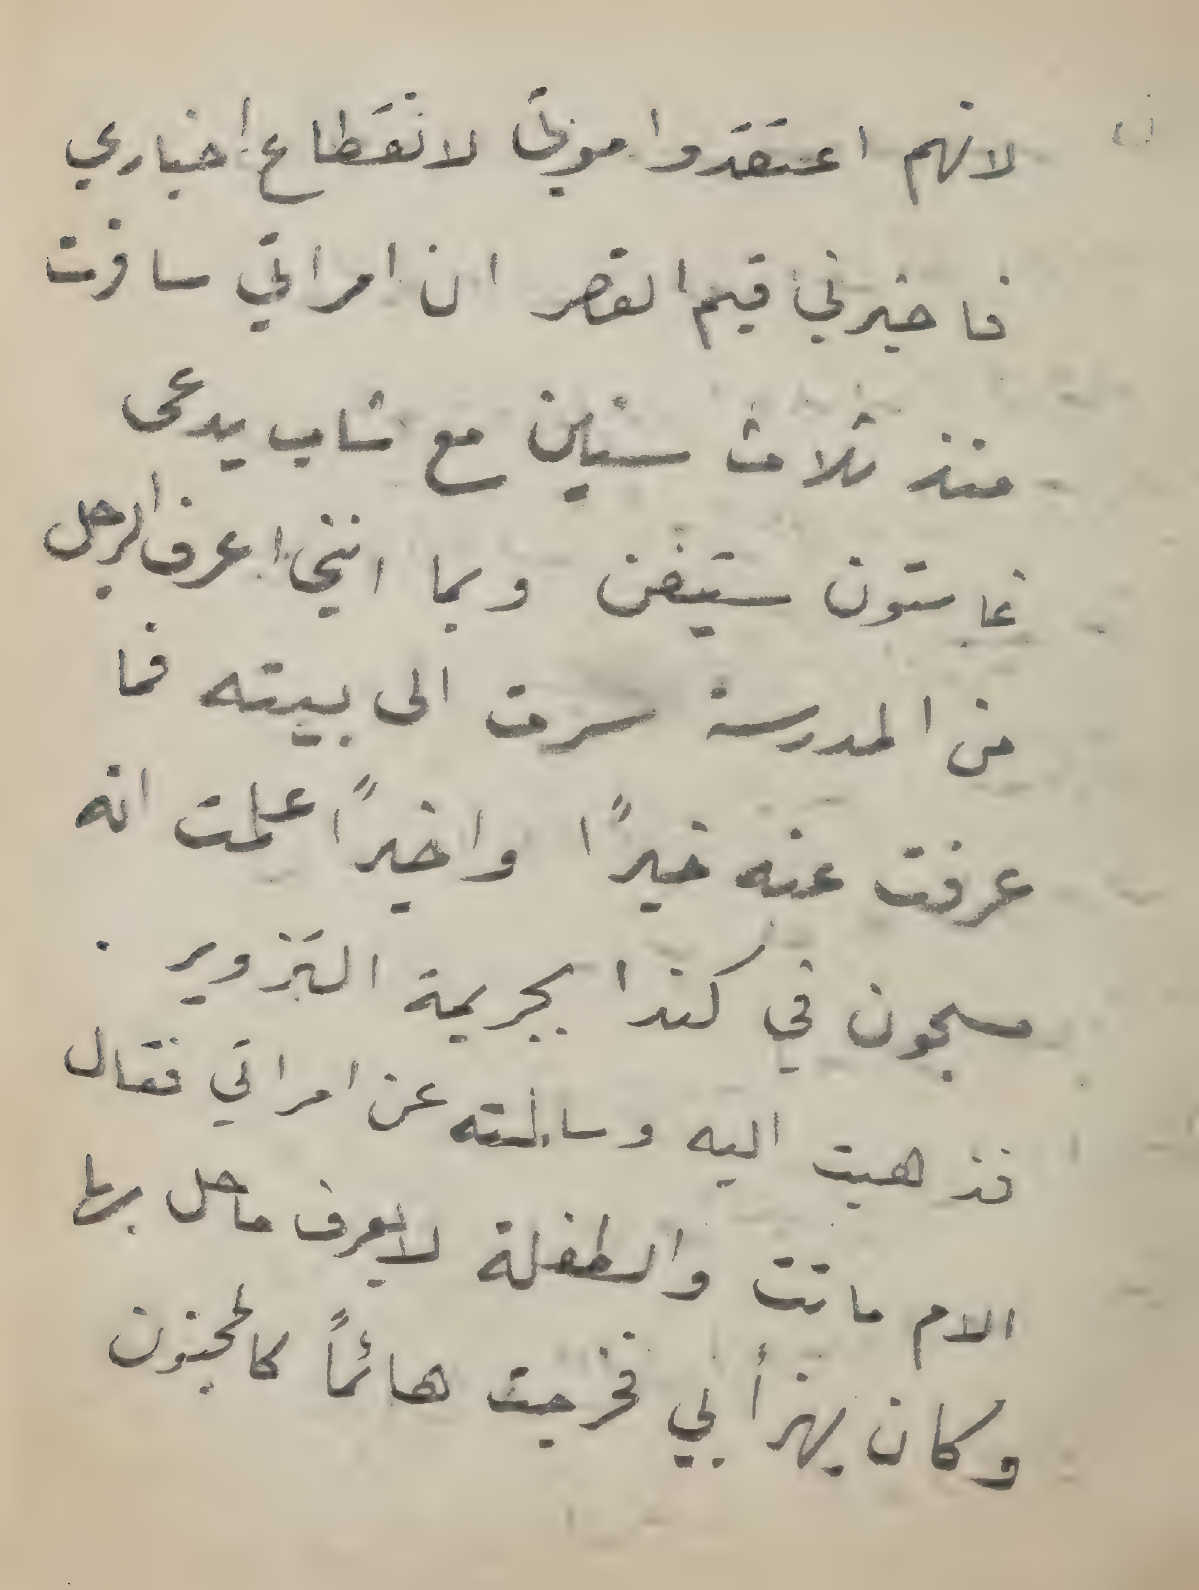 لانهم اعتقدوا موتي لانقطاع اخباري
فاخبرني قيم القصر ان امراتي سافرت
منذ ثلاث سنين مع شاب يدعى
غاستون ستيفن وبما انني اعرف الرجل
من المدرسة سرت الى بيته فما
عرفت عنه خبرًا واخيرًا علمت انه
مسجون في كندا بجريمة التزوير .
فذهبت اليه وسالته عن امراتي فقال
الام ماتت والطفلة لا يعرف ما حل بها
وكان يهزأ بي فخرجت هائمًا كالمجنون